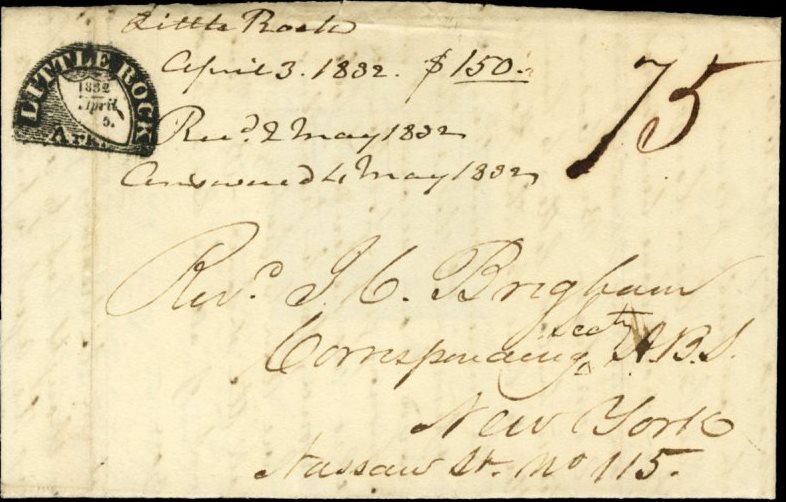 LITTLE ROCK
1832
April
5.
Ark.
Little Rock
April 3. 1832. $150.
Recd. 2 May 1832
Answered 4 May 1832
75
Revd. J. C. Brigham
Corresponding secty A.B.S.
New York
Nassau St. No 115.